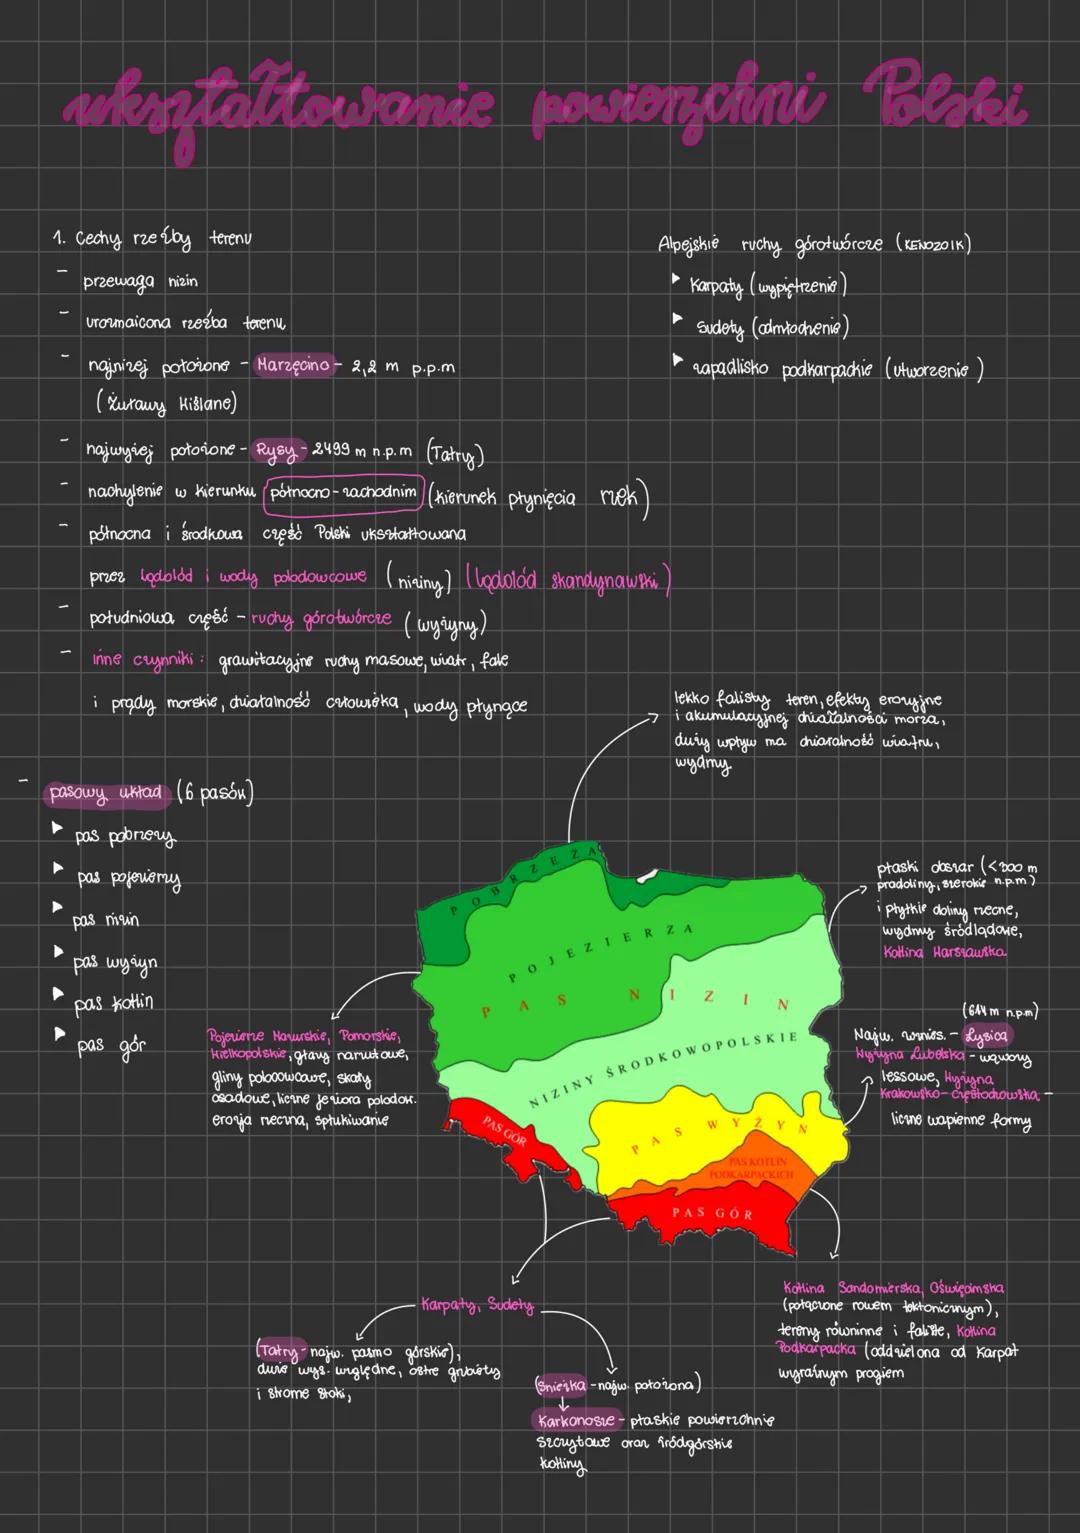 ukształtowanie powierzchni Polski
1. Cechy rzeźby terenu
- przewaga nizin
- urozmaicona rzeźba terenu
- najniżej położone - Marzęcino - 2,2 m p.p.m
(Żuławy Wiślane)
- najwyżej położone - Rysy - 2499 m n.p.m (Tatry)
- nachylenie w kierunku północno-zachodnim (kierunek płynięcia rzek)
- północna i środkowa część Polski ukształtowana
przez lądolód i wody polodowcowe (niziny) (lądolód skandynawski)
- południowa część - ruchy górotwórcze (wyżyny)
- inne czynniki: grawitacyjne ruchy masowe, wiatr, fale
i prądy morskie, działalność człowieka, wody płynące
Alpejskie ruchy górotwórcze (KENOZOIK)
▸ Karpaty (wypiętrzenie)
▸ Sudety (odmłodzenie)
▸ zapadlisko podkarpackie (utworzenie)
- pasowy układ (6 pasów)
▸ pas pobrzeży
▸ pas pojezierzy
▸ pas nizin
▸ pas wyżyn
▸ pas kotlin
▸ pas gór
lekko falisty teren, efekty erozyjne
i akumulacyjnej działalności morza,
duży wpływ ma działalność wiatru,
wydmy
płaski obszar (<300 m
pradoliny, szerokie n.p.m)
i płytkie doliny rzeczne,
wydmy śródlądowe,
Kotlina Warszawska
POBRZEŻA
POJEZIERZA
PAS NIZIN
NIZINY ŚRODKOWOPOLSKIE
PAS WYŻYN
PAS KOTLIN
PODKARPACKICH
PAS GÓR
PAS GÓR
Pojezierze Mazurskie, Pomorskie,
Wielkopolskie, głazy narzutowe,
gliny polodowcowe, skały
osadowe, liczne jeziora polodow.
erozja rzeczna, spłukiwanie
(614 m n.p.m)
Najw. wznies. - Łysica
Wyżyna Lubelska - wąwozy
lessowe, Wyżyna
Krakowsko-Częstochowska -
liczne wapienne formy
Karpaty, Sudety
(Tatry - najw. pasmo górskie),
duże wys. względne, ostre grzbiety
i strome stoki,
(Śnieżka - najw. położona)
Karkonosze - płaskie powierzchnie
szczytowe oraz śródgórskie
kotliny
Kotlina Sandomierska, Oświęcimska
(połączone rowem tektonicznym),
tereny równinne i faliste, Kotlina
Podkarpacka (oddzielona od Karpat
wyraźnym progiem